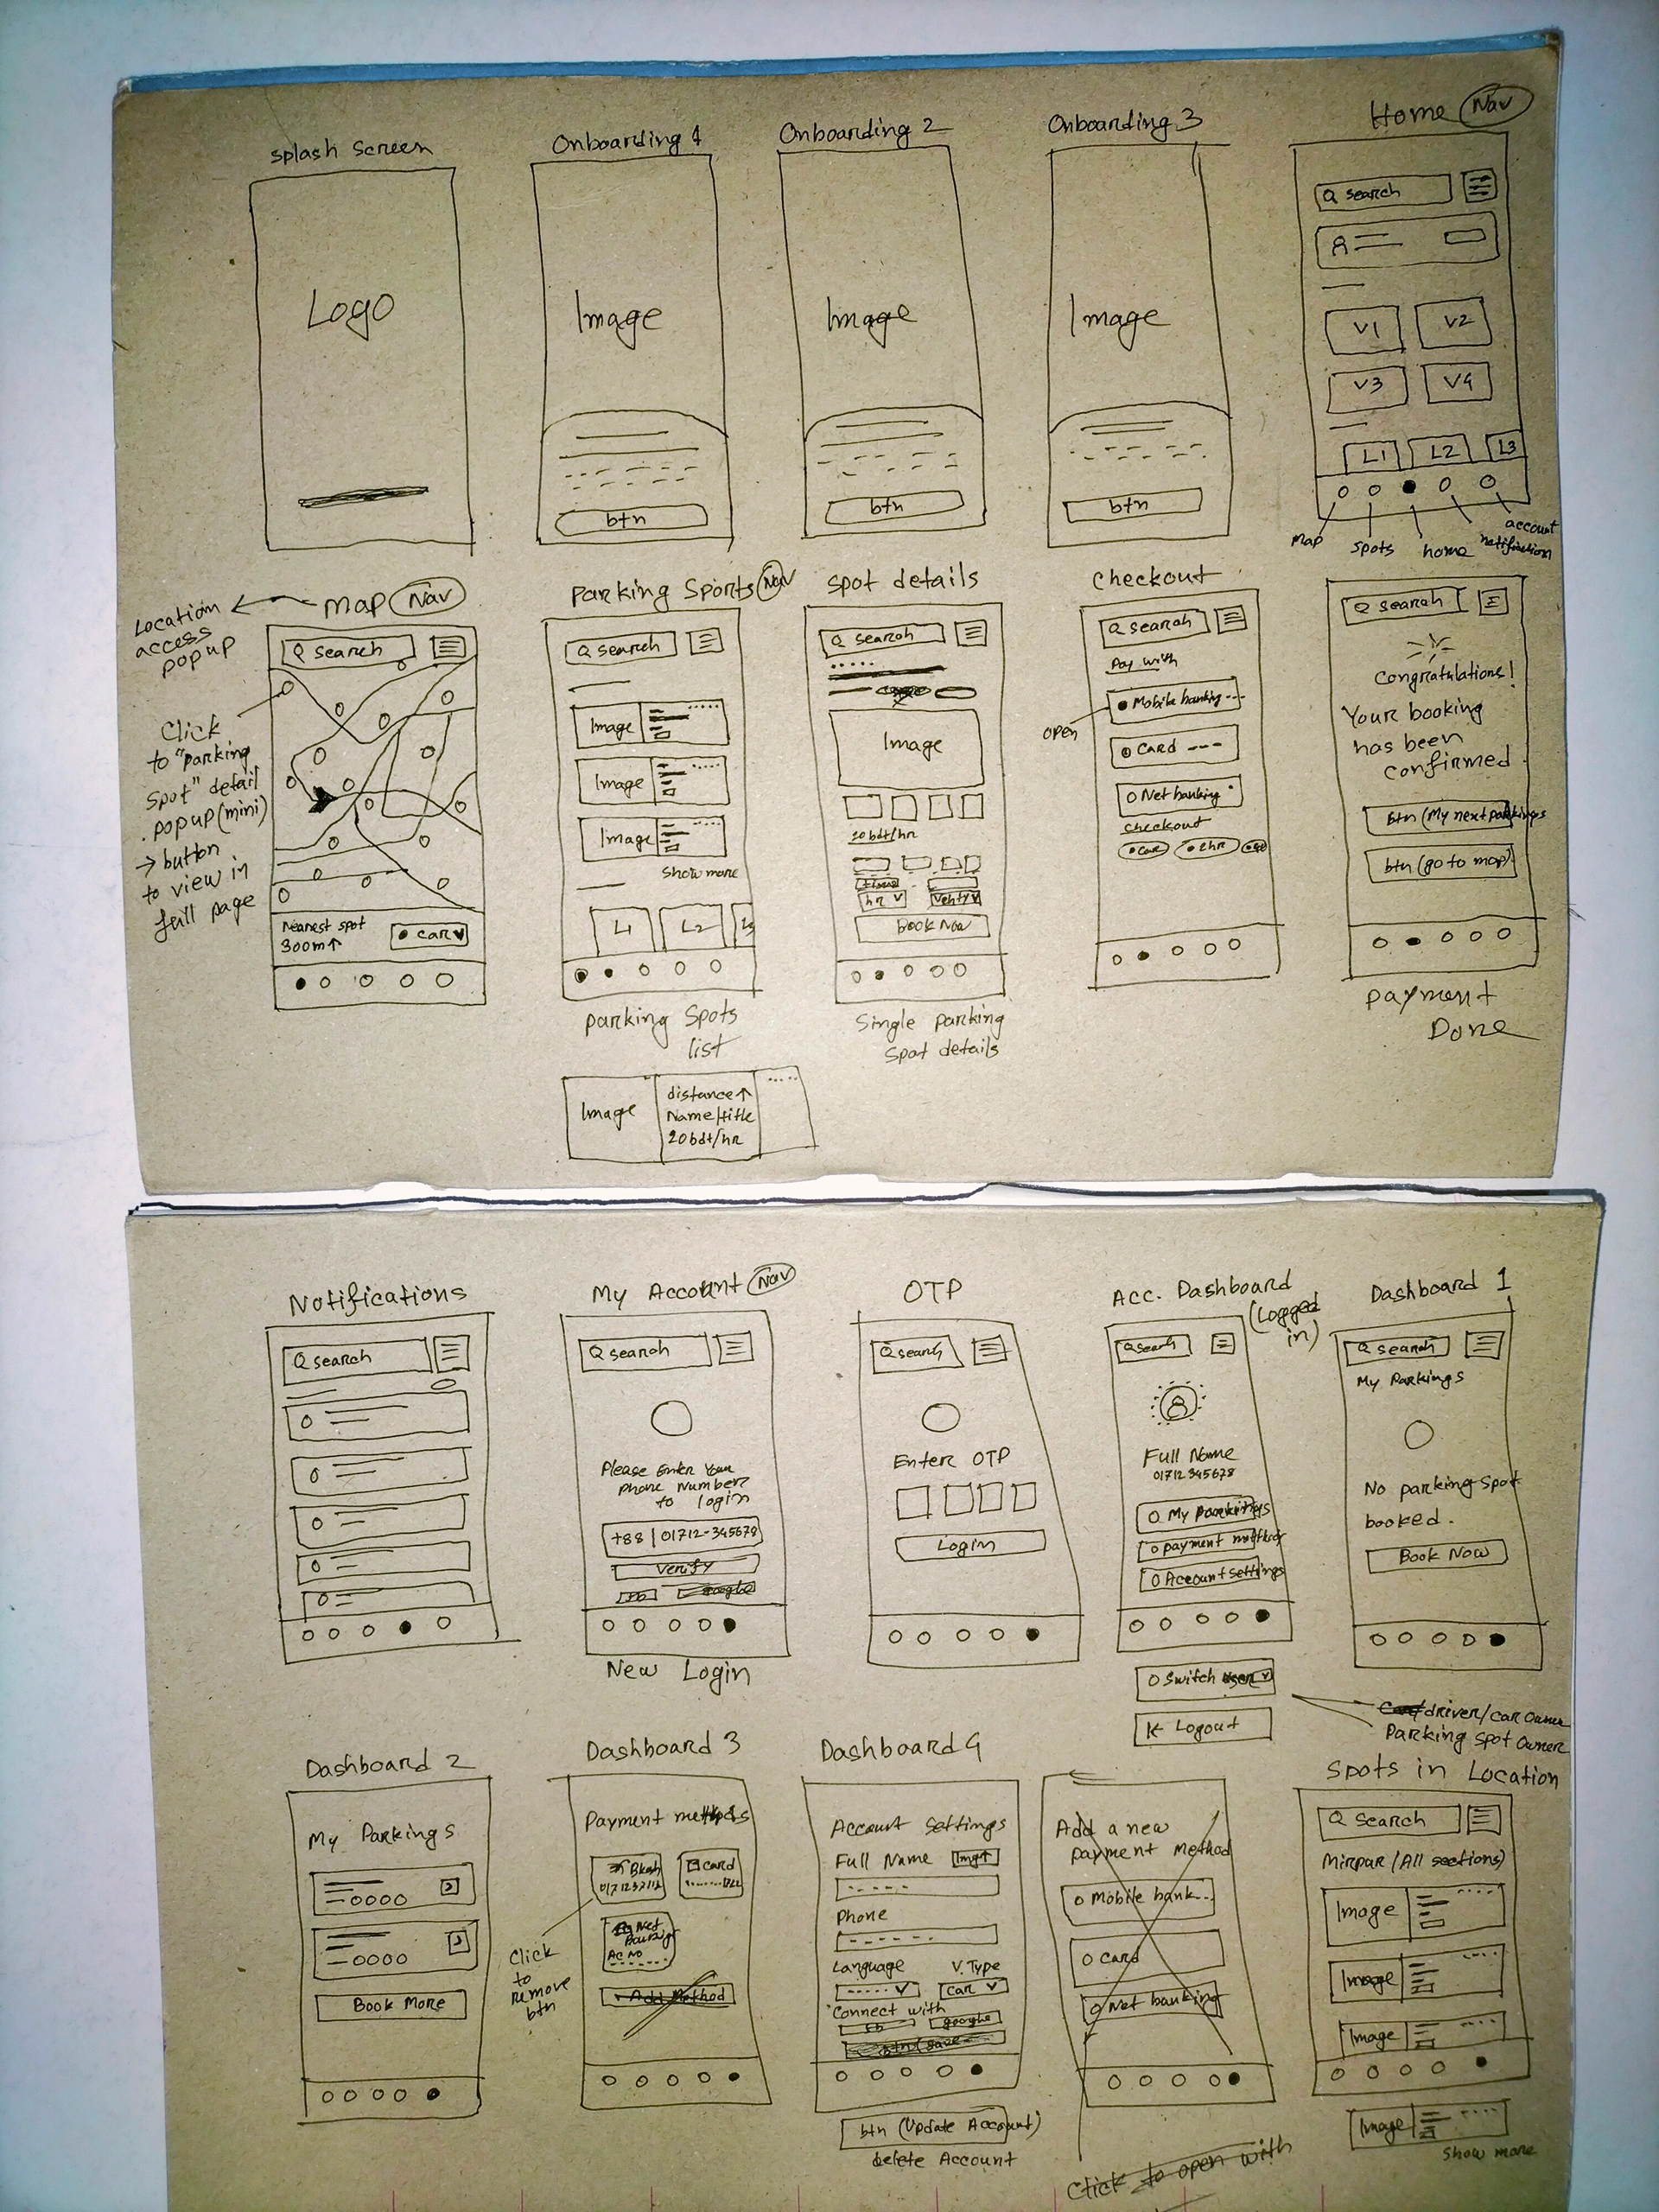 Splash Screen
Logo
Onboarding 1
Image
btn
Onboarding 2
Image
btn
Onboarding 3
Image
btn
Home Nav
Search
V1 V2
V3 V4
L1 L2 L3
map
spots
home
notification
account
Location
access
popup
Map Nav
Search
Click
to "parking
spot" detail
popup(mini)
→ button
to view in
full page
Nearest spot
300m↑
car
Parking Sports Nav
Search
Image
Image
Image
Show more
L1 L2 L3
Parking Spots
list
Image
distance↑
Name/title
20bdt/hr
Spot details
Search
Image
20bdt/hr
hr
Book Now
Single parking
Spot details
Checkout
Search
Pay with
Mobile banking ---
open
Card ---
Net banking
Checkout
car 2hr
Search
Congratulations!
Your booking
has been
confirmed
btn (My next parkings
btn (go to map)
Payment
Done
Notifications
Search
My Account Nav
Search
Please Enter Your
Phone Number
to login
+88 | 01712-345678
Verify
fb google
New Login
OTP
Search
Enter OTP
Login
Acc. Dashboard
(Logged
in)
Search
Full Name
01712345678
My Parkings
payment method
Account settings
Switch User
Logout
driver/car Owner
Parking Spot Owner
Dashboard 1
Search
My Parkings
No parking spot
booked.
Book Now
Dashboard 2
My Parkings
Book More
Dashboard 3
Payment methods
Bkash
card
Net
Banking
AC NO
Add Method
Click
to
remove
btn
Dashboard 4
Account Settings
Full Name Img↑
Phone
Language V.Type
car
Connect with
fb google
btn (save
btn (Update Account)
delete Account
Add a new
payment Method
Mobile bank...
Card
Net banking
Click to open with
Spots in Location
Search
Mirpur (All sections)
Image
Image
Image
Image
Show more